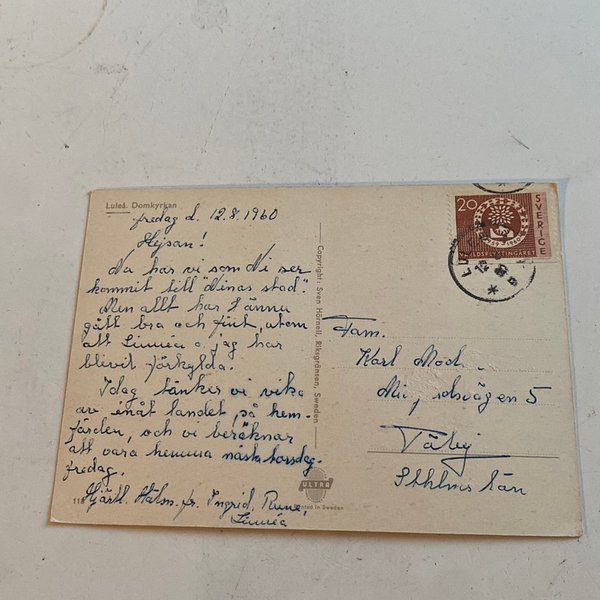 Luleå. Domkyrkan
fredag d. 12.8.1960
Hejsan!
Nu har vi som Ni ser
kommit till "Ninas stad".
Men allt har ännu
gått bra och fint, utom
att Linnéa o. jag har
blivit förkylda.
Idag tänker vi vika
av inåt landet, på hem-
färden, och vi beräknar
att vara hemma nästa torsdag-
fredag.
Hjärtl. Hälsn. fr. Ingrid, Rune,
Linnéa
Copyright: Sven Hörnell, Riksgränsen, Sweden
20
SVERIGE
VÄRLDSFLYKTINGÅRET
Fam.
Karl
5
Täby
Sthlms län
ULTRA
Printed in Sweden